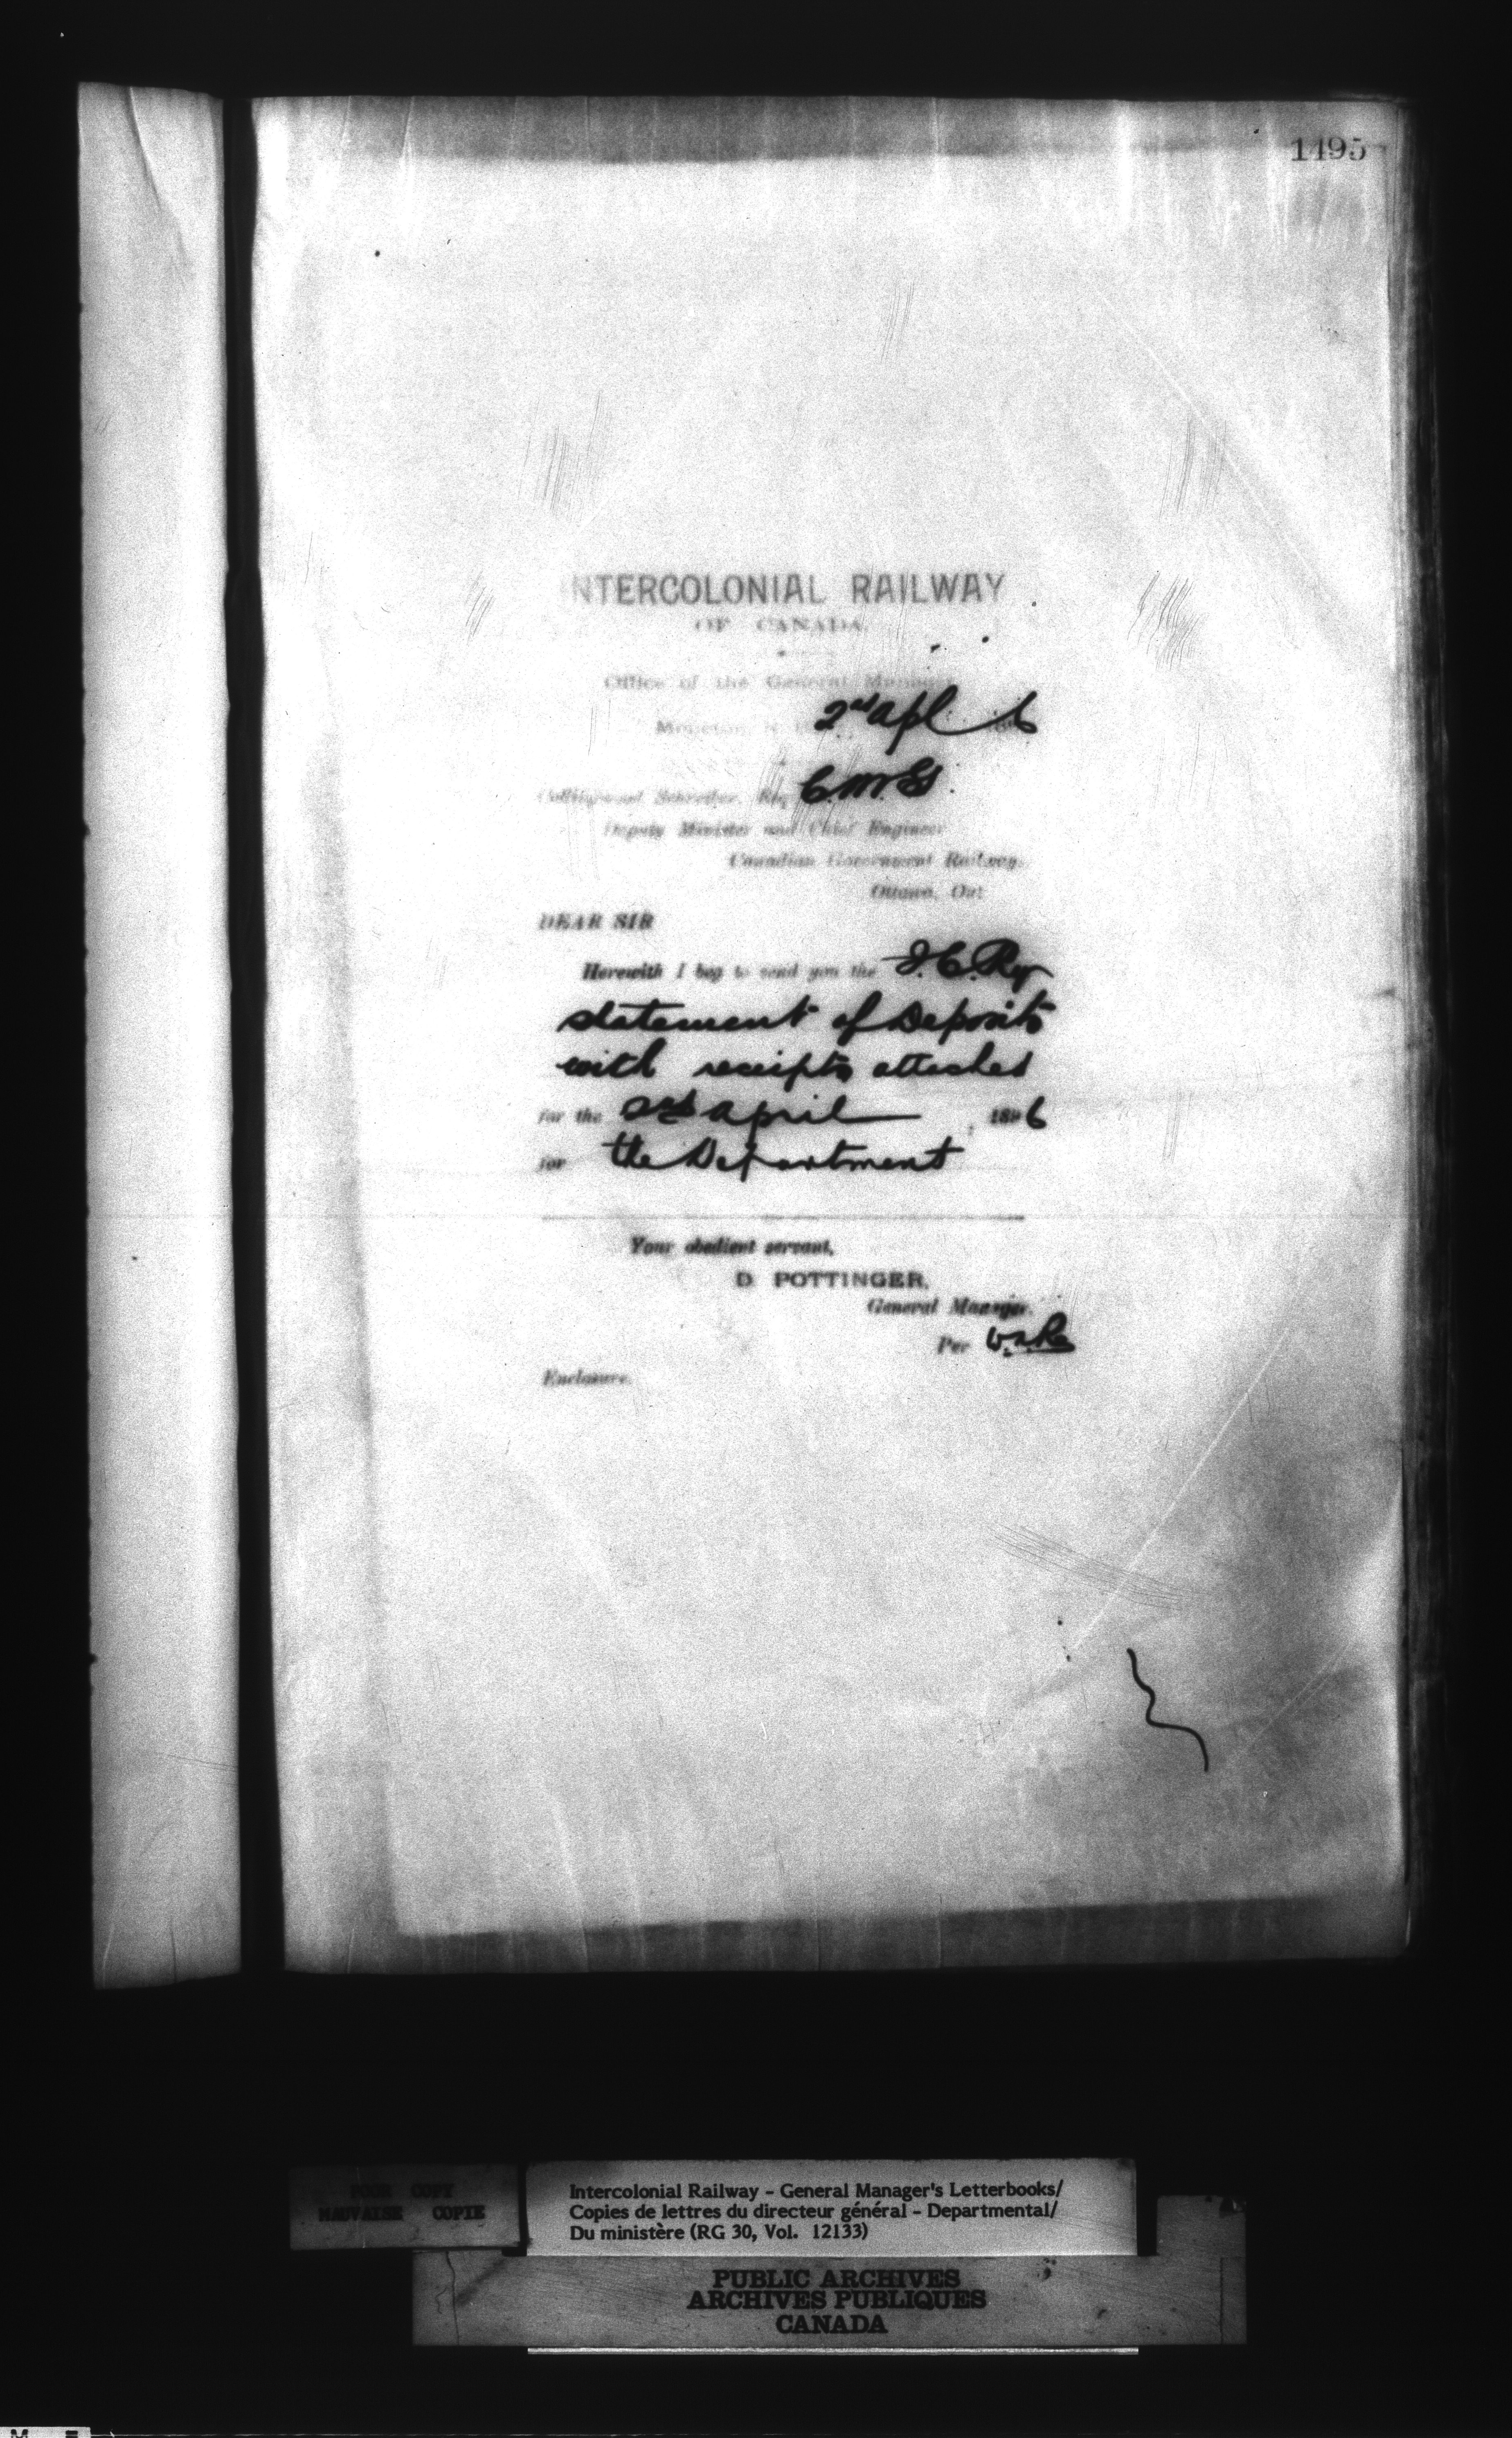 1495
INTERCOLONIAL RAILWAY
OF CANADA.
Office of the General Manager
Moncton, N. 2nd Apl 6
Collingwood Schreiber, Esq C.M.G.
Deputy Minister and Chief Engineer
Canadian Government Railways.
Ottawa, Ont
DEAR SIR
Herewith I beg to send you the I.C.Ry
statement of Deposits
with receipts attached
for the 2nd April 1896
for the Department
Your obedient servant,
D. POTTINGER,
General Manager.
Per
Enclosure.
POOR COPY
MAUVAISE COPIE
Intercolonial Railway - General Manager's Letterbooks/
Copies de lettres du directeur général - Departmental/
Du ministère (RG 30, Vol. 12133)
PUBLIC ARCHIVES
ARCHIVES PUBLIQUES
CANADA